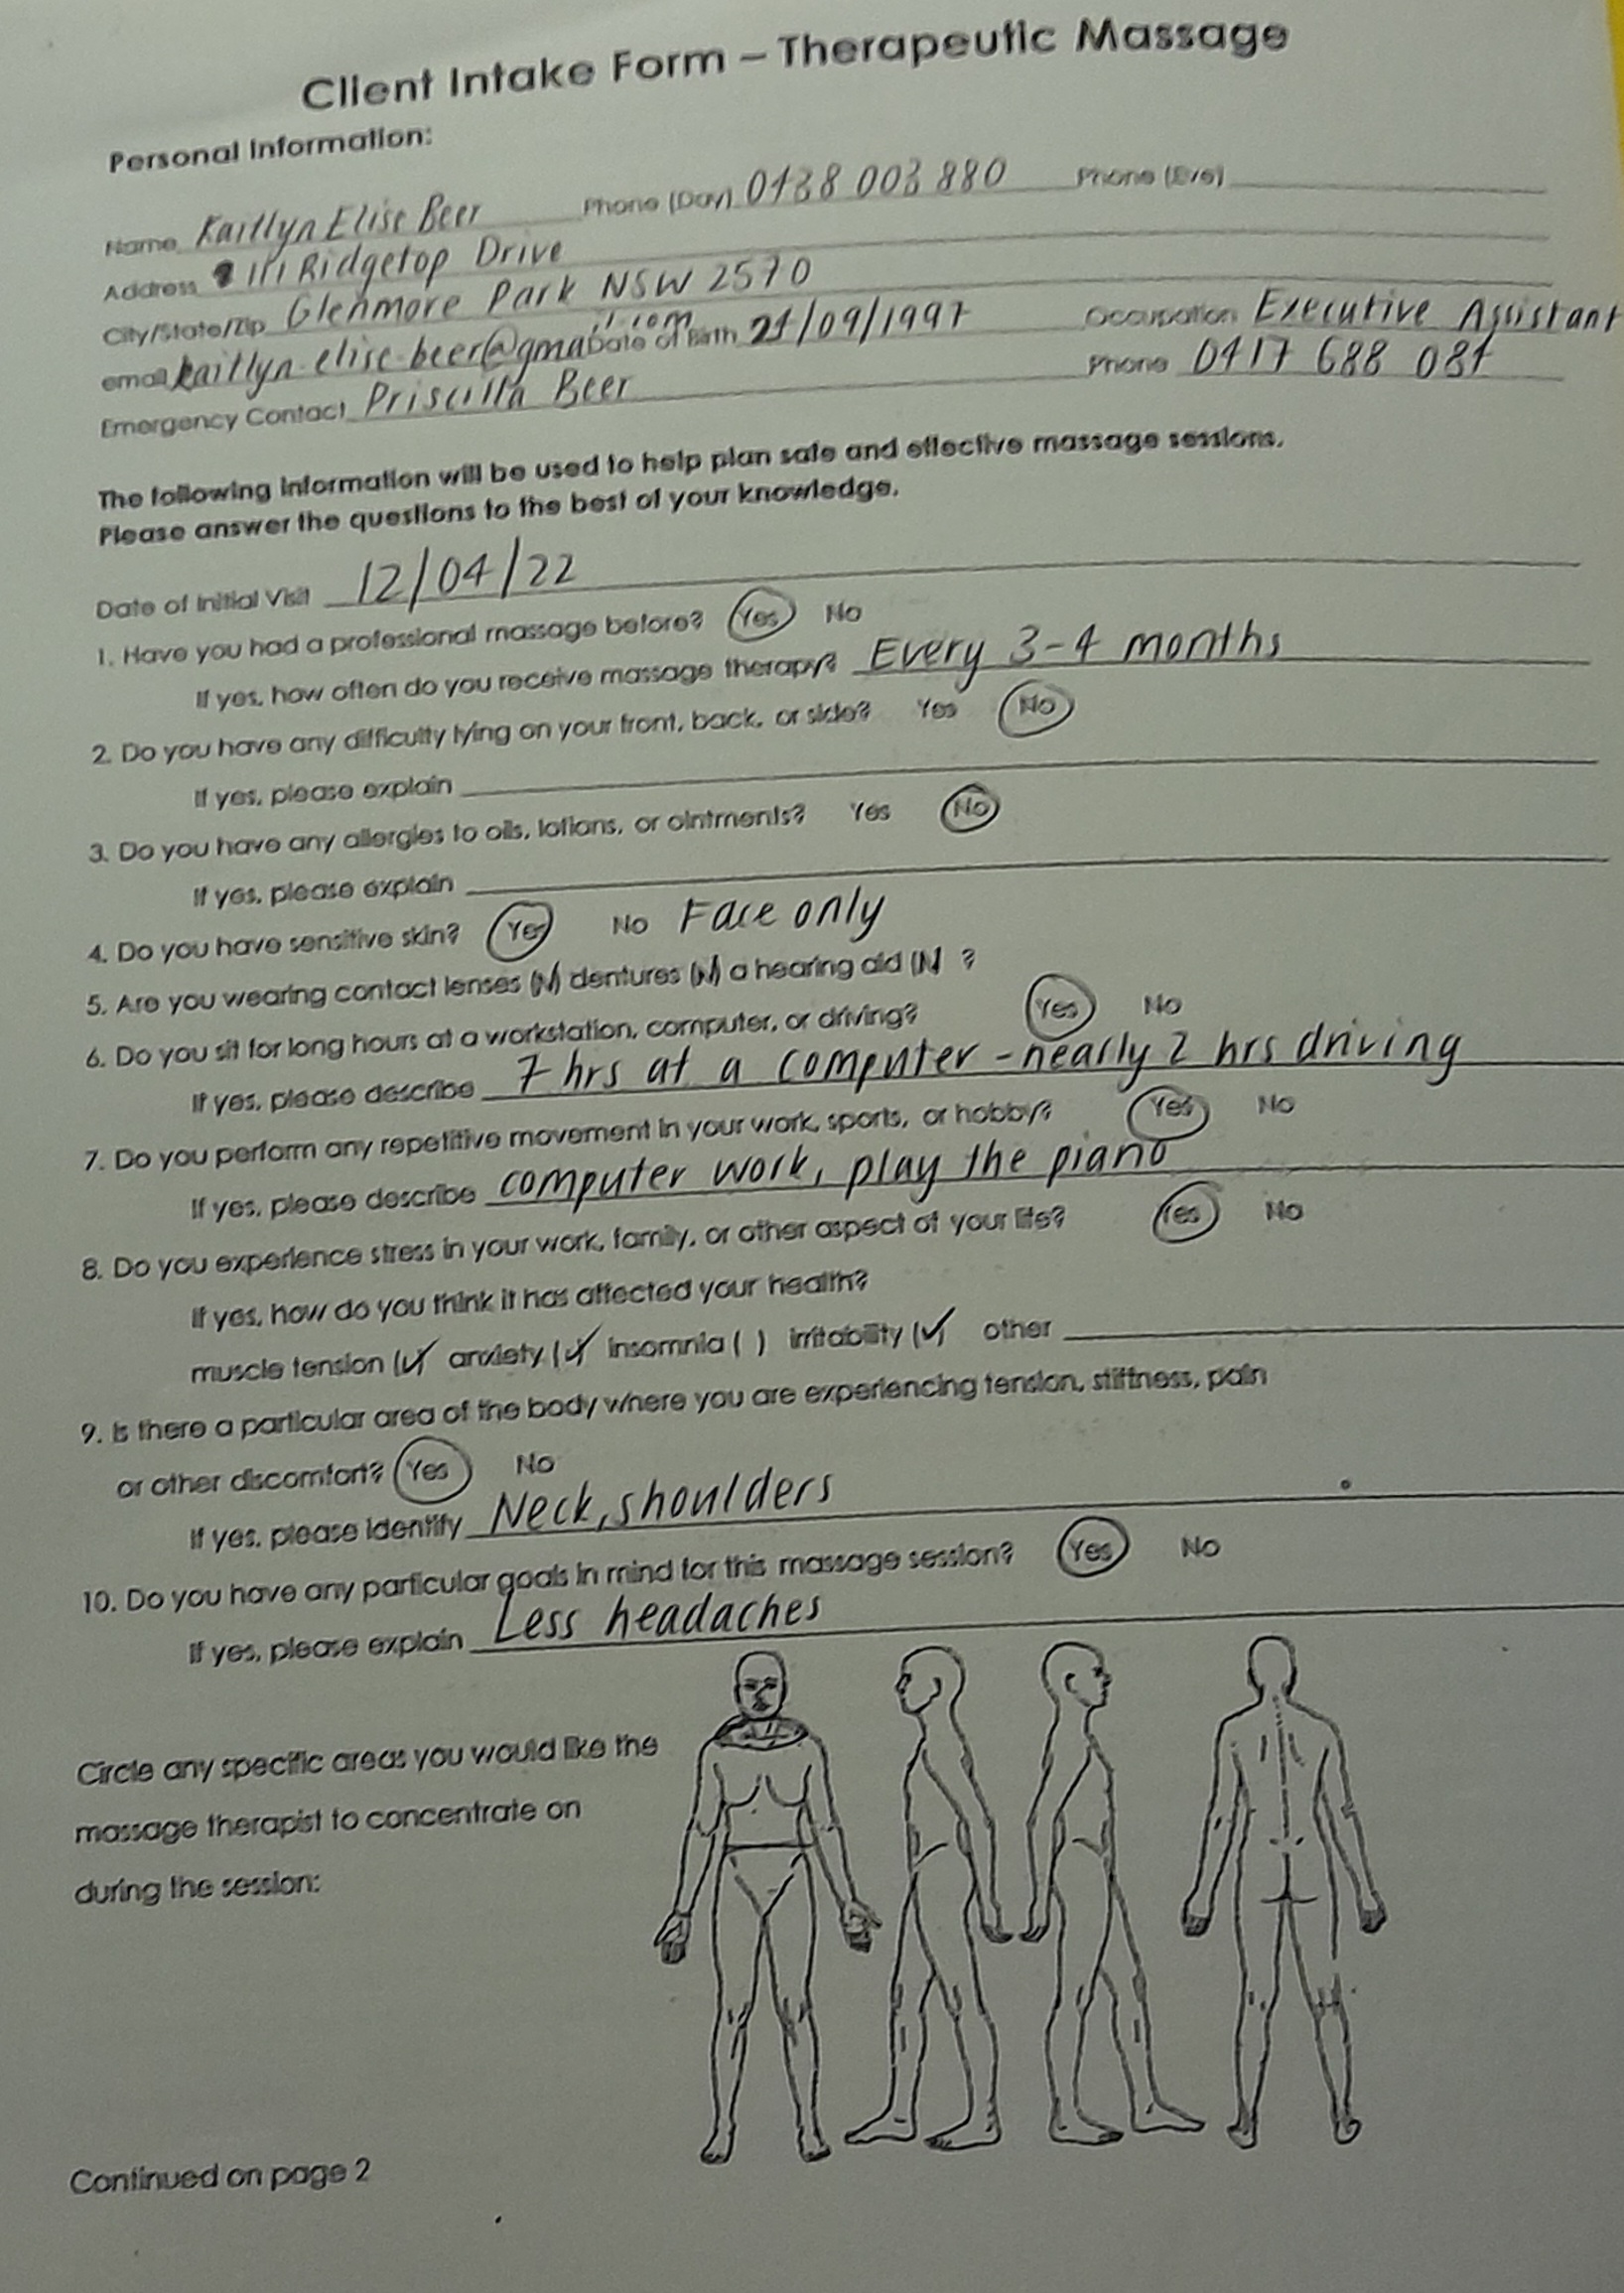 Client Intake Form – Therapeutic Massage
Personal Information:
Name Kaitlyn Elise Beer Phone (Day) 0438 003 880 Phone (Eve)
Address 111 Ridgetop Drive
City/State/Zip Glenmore Park NSW 2570
email kaitlyn.elise.beer@gmail.com Date of Birth 21/09/1997 Occupation Executive Assistant
Emergency Contact Priscilla Beer Phone 0417 688 087
The following information will be used to help plan safe and effective massage sessions.
Please answer the questions to the best of your knowledge.
Date of Initial Visit 12/04/22
1. Have you had a professional massage before? Yes No
If yes, how often do you receive massage therapy? Every 3-4 months
2. Do you have any difficulty lying on your front, back, or side? Yes No
If yes, please explain
3. Do you have any allergies to oils, lotions, or ointments? Yes No
If yes, please explain
4. Do you have sensitive skin? Yes No Face only
5. Are you wearing contact lenses (N) dentures (N) a hearing aid (N) ?
6. Do you sit for long hours at a workstation, computer, or driving? Yes No
If yes, please describe 7 hrs at a computer - nearly 2 hrs driving
7. Do you perform any repetitive movement in your work, sports, or hobby? Yes No
If yes, please describe computer work, play the piano
8. Do you experience stress in your work, family, or other aspect of your life? Yes No
If yes, how do you think it has affected your health?
muscle tension (✓) anxiety (✓) insomnia ( ) irritability (✓) other
9. Is there a particular area of the body where you are experiencing tension, stiffness, pain
or other discomfort? Yes No
If yes, please identify Neck, shoulders
10. Do you have any particular goals in mind for this massage session? Yes No
If yes, please explain Less headaches
Circle any specific areas you would like the
massage therapist to concentrate on
during the session:
Continued on page 2